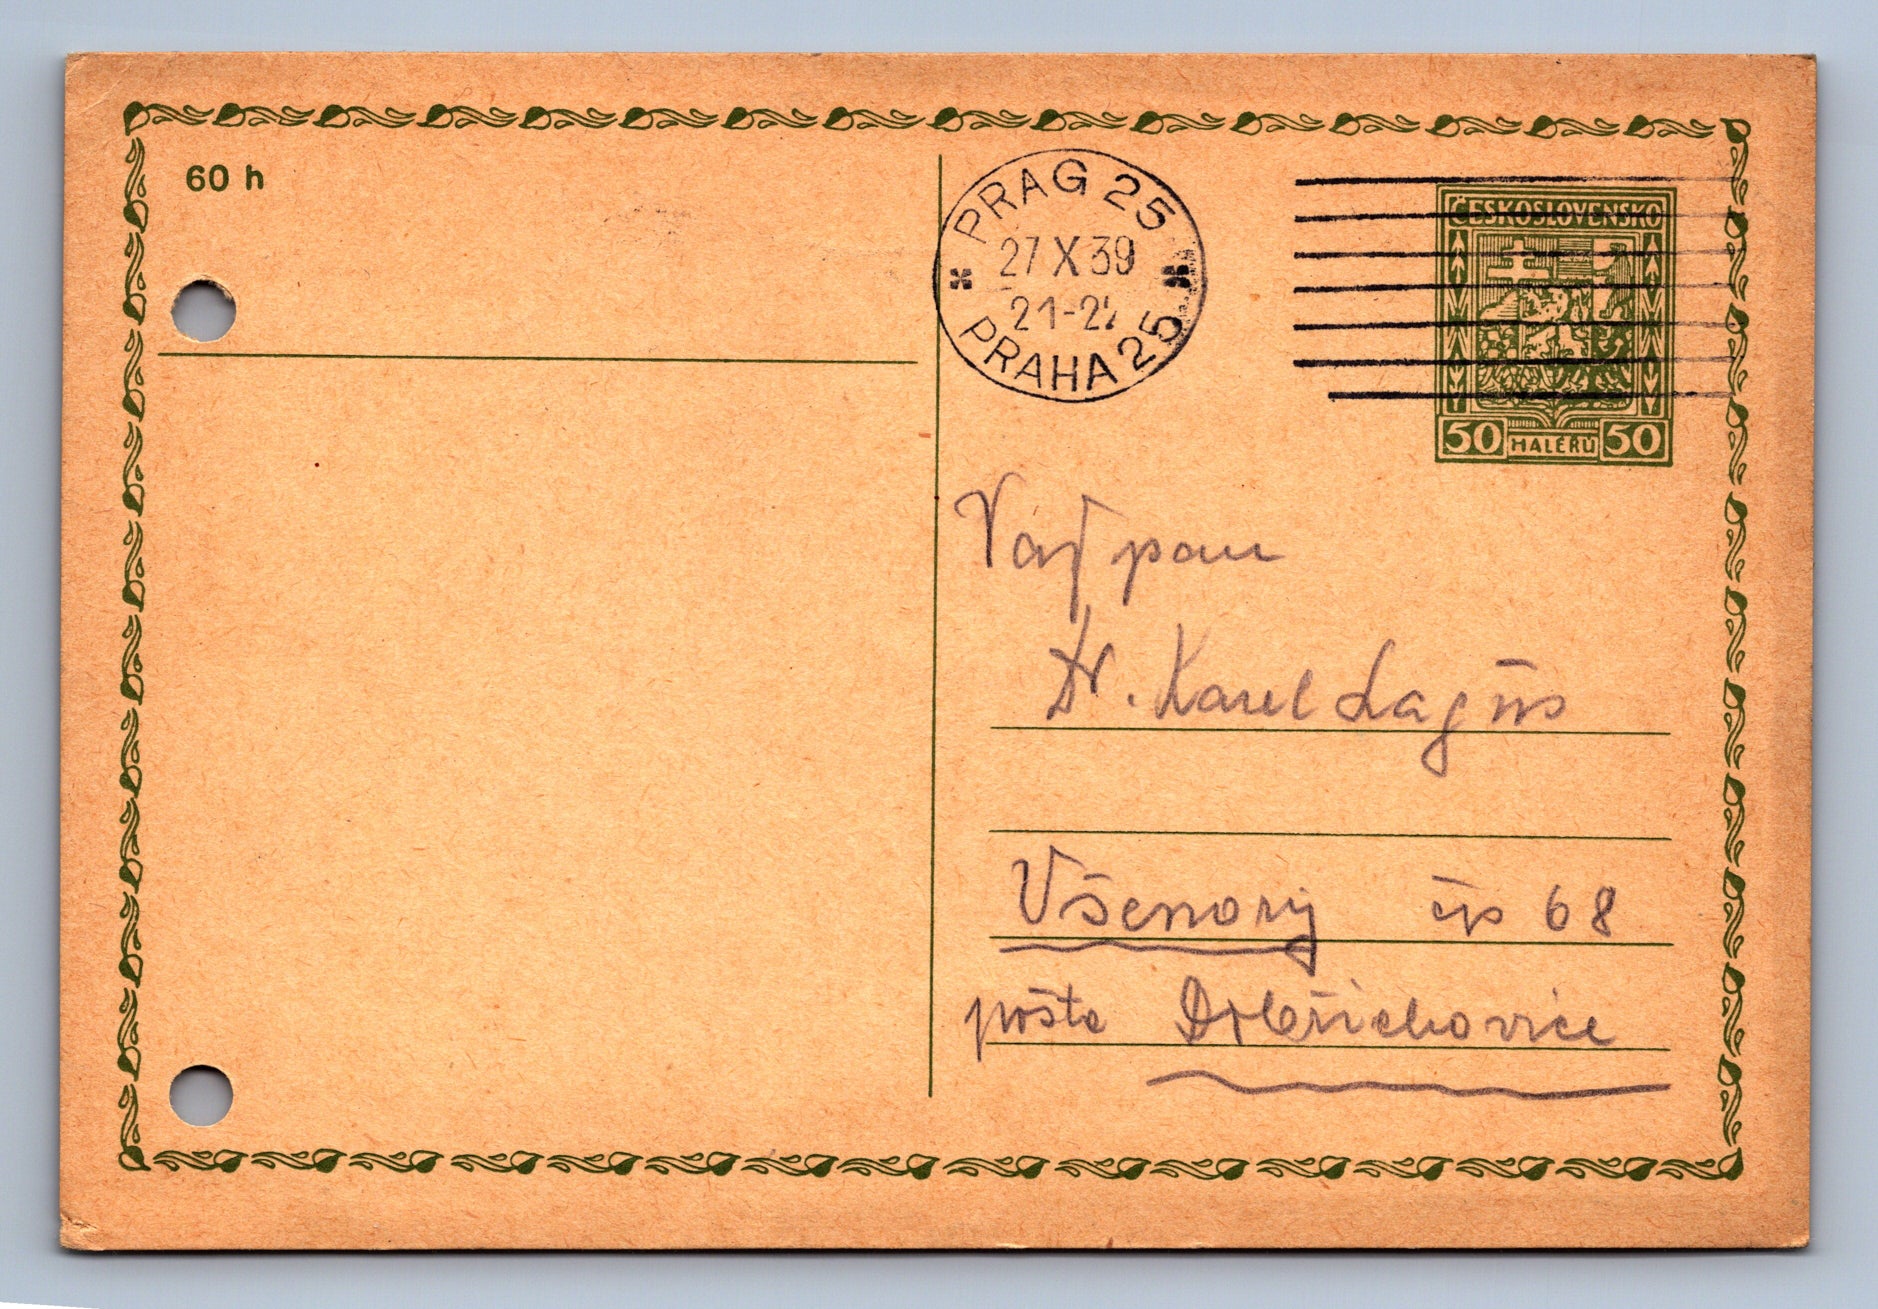 60 h
PRAG 25
27 X 39
21-22
PRAHA 25
ČESKOSLOVENSKO
50 HALÉŘŮ 50
Váž pan
Dr. Karel Lagus
Všenory čp 68
pošta Dobřichovice